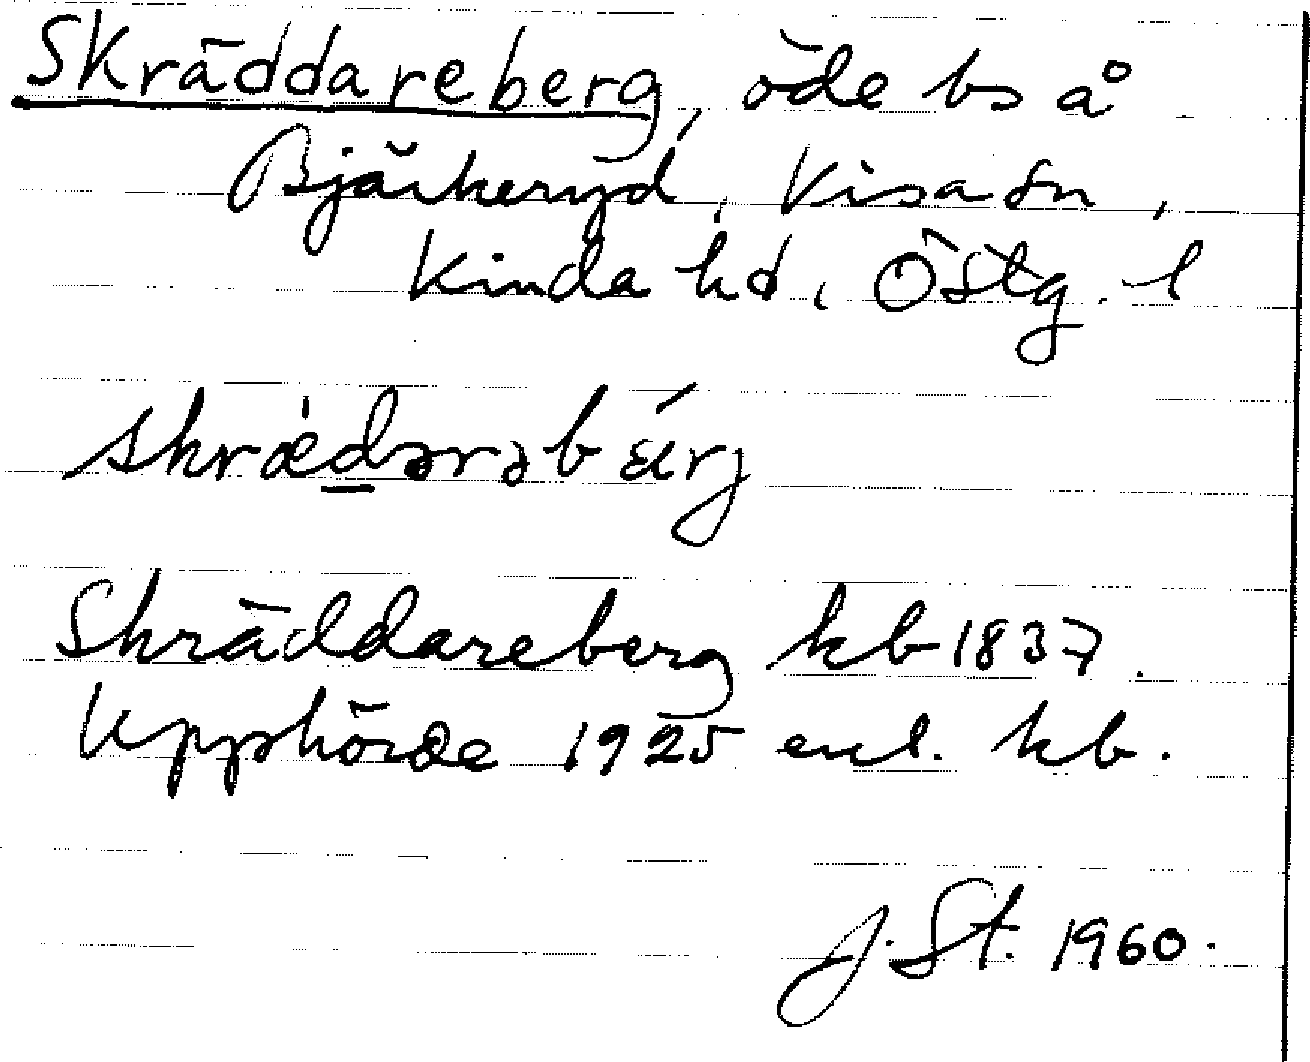 Skräddareberg, öde bs å
Bjärkeryd, Kisa sn,
Kinda hd, Östg. l
skræ̀dərəbǽrj
Skräddareberg kb 1837.
Upphörde 1925 enl. kb.
J. St. 1960.